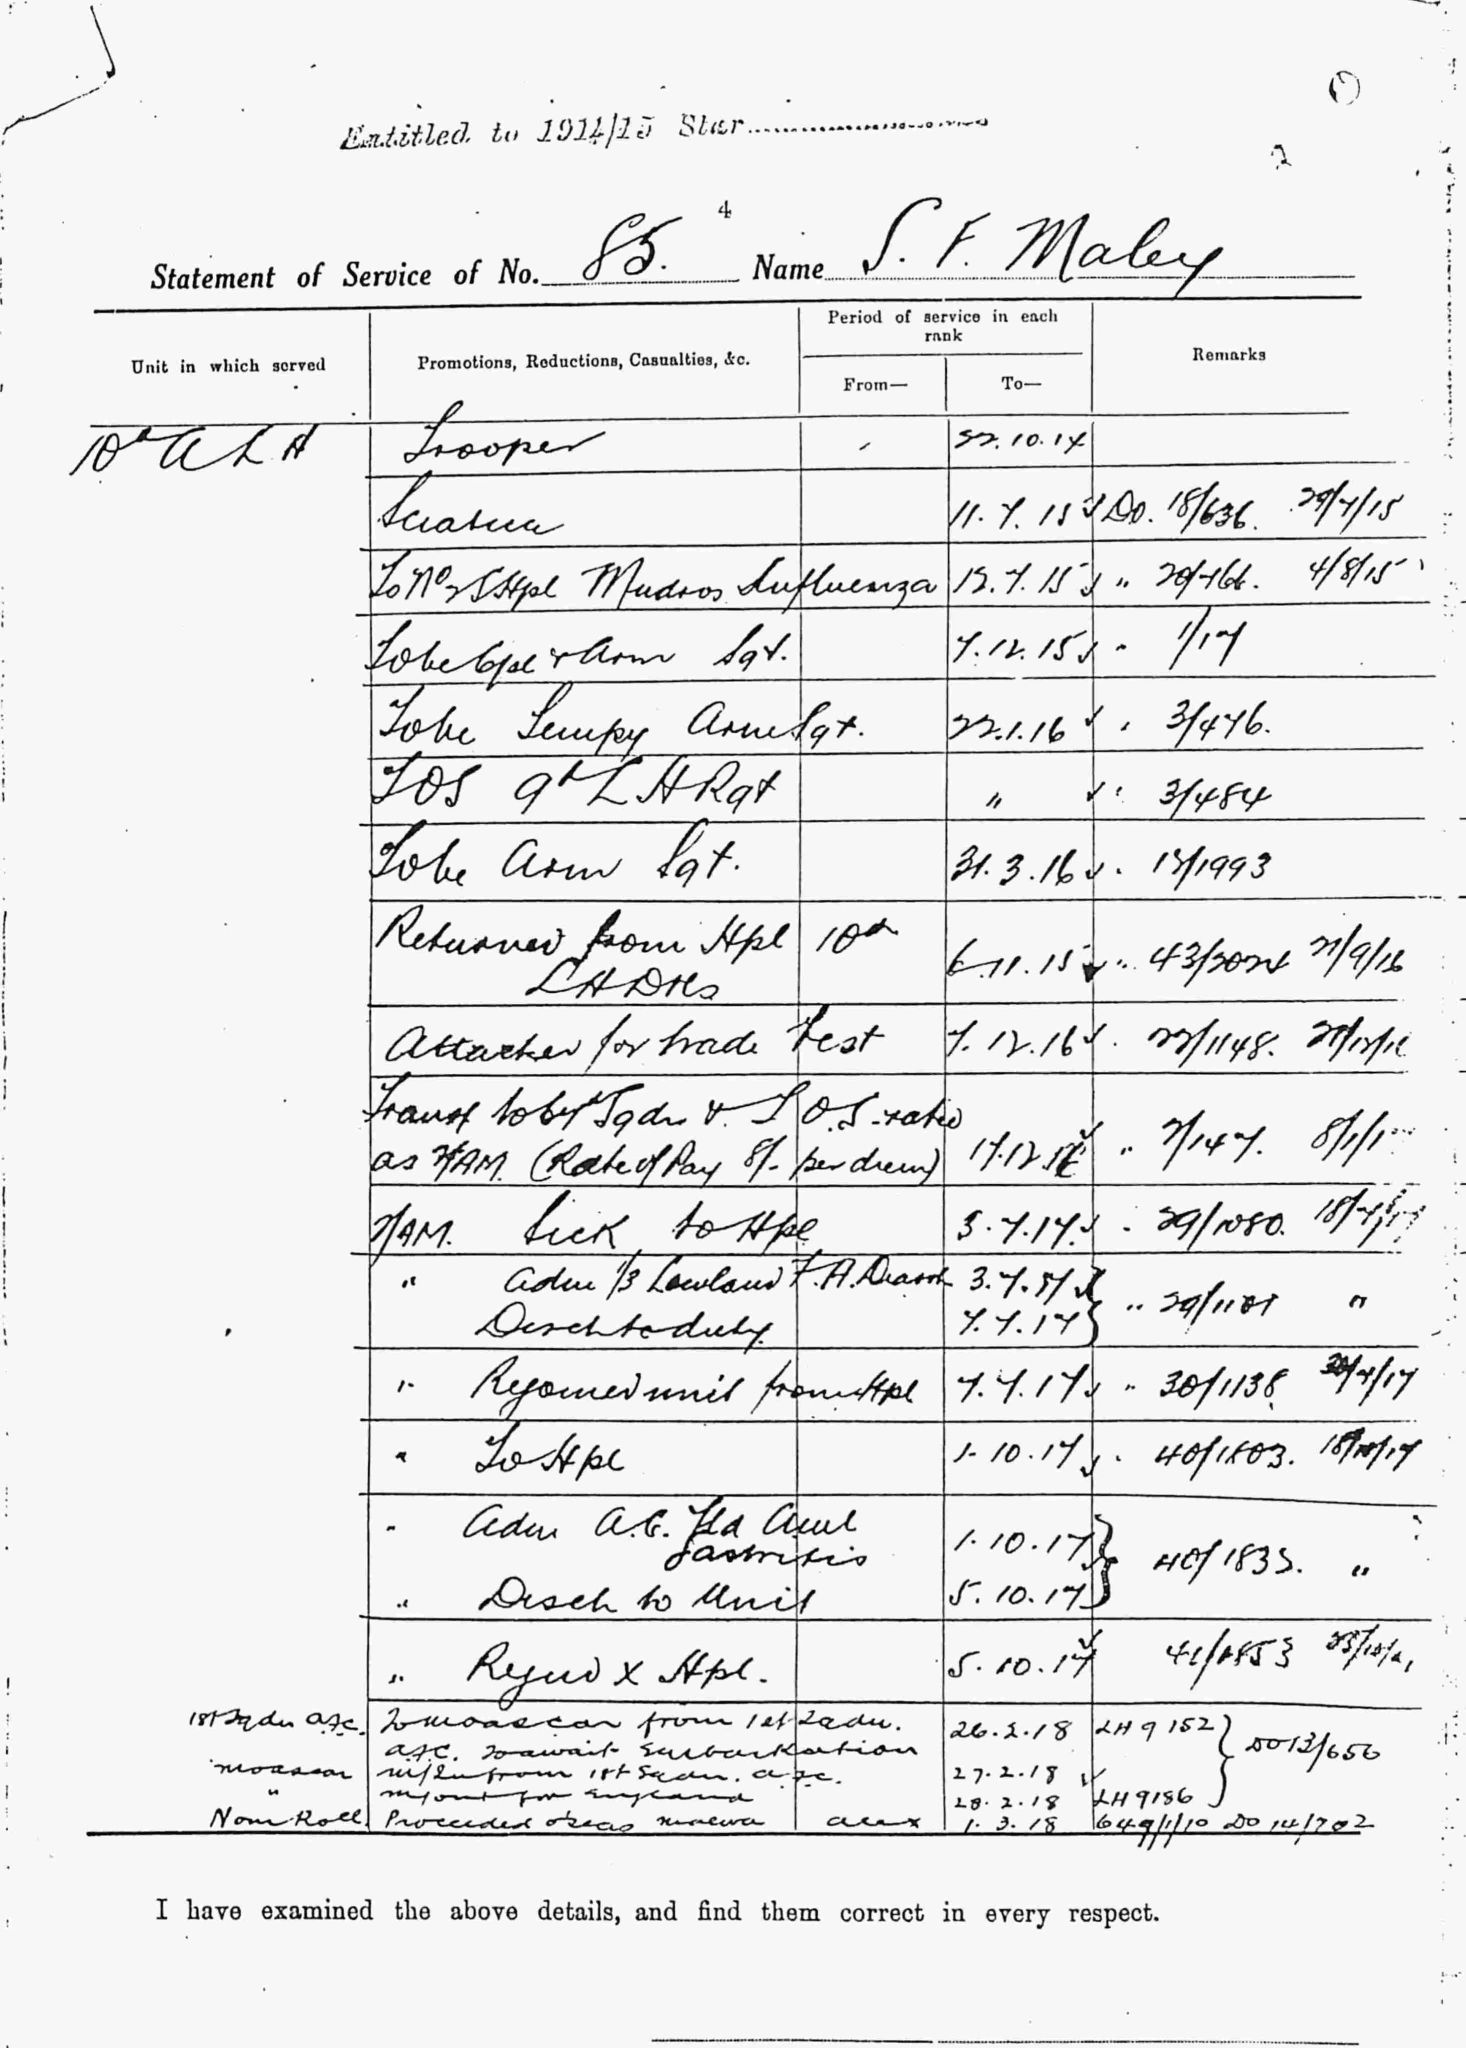 Entitled to 1914/15 Star
2
4
Statement of Service of No. 85. Name S. F. Maley
Unit in which served Promotions, Reductions, Casualties, &c. Period of service in each rank From— To— Remarks
10th A L H Trooper 22.10.14
Sciatica 11.7.15 DO. 18/636. 29/7/15
To No 2 S Hpl Mudros Influenza 12.7.15 " 20/766. 4/8/15
To be Cpl & Arm Sgt. 7.12.15 " 1/17
To be Tempy Arm Sgt. 22.1.16 " 3/476.
TOS 9th L H Rgt " " 3/484
To be Arm Sgt. 31.3.16 " 13/1993
Returned from Hpl 10th
L H DHs 6.11.15 " 43/2024 21/9/16
Attached for trade test 7.12.16 " 22/1148.
Transf to 67th Sqdn & T.O.S.
as 2/AM. (Rate of Pay 8/- per diem) 17.12.16 " 2/147. 8/1/1
2/AM. Sick to Hpl 3.7.17 " 29/1080.
" Adm 1/3 Lowland F.A. 3.7.17
Disch to duty 7.7.17 " 29/1101 "
" Rejoined unit from Hpl 7.7.17 " 30/1138
" To Hpl 1.10.17 " 40/1803. 18/10/17
" Adm A.C. Fld Aml
Gastritis 1.10.17
" Disch to Unit 5.10.17 40/1833. "
" Rejnd X Hpl. 5.10.17 41/1853
1st Sqdn A.F.C. To Moascar from 1st Sqdn. 26.2.18 LH 9152 DO 13/656
A.F.C. to await Embarkation
Moascar M/In from 1st Sqdn. A.F.C. 27.2.18
" M/out for England 28.2.18 LH 9186
Nom Roll. Proceeded o'seas Malwa Alex 1.3.18 649/1/10 DO 14/702
I have examined the above details, and find them correct in every respect.